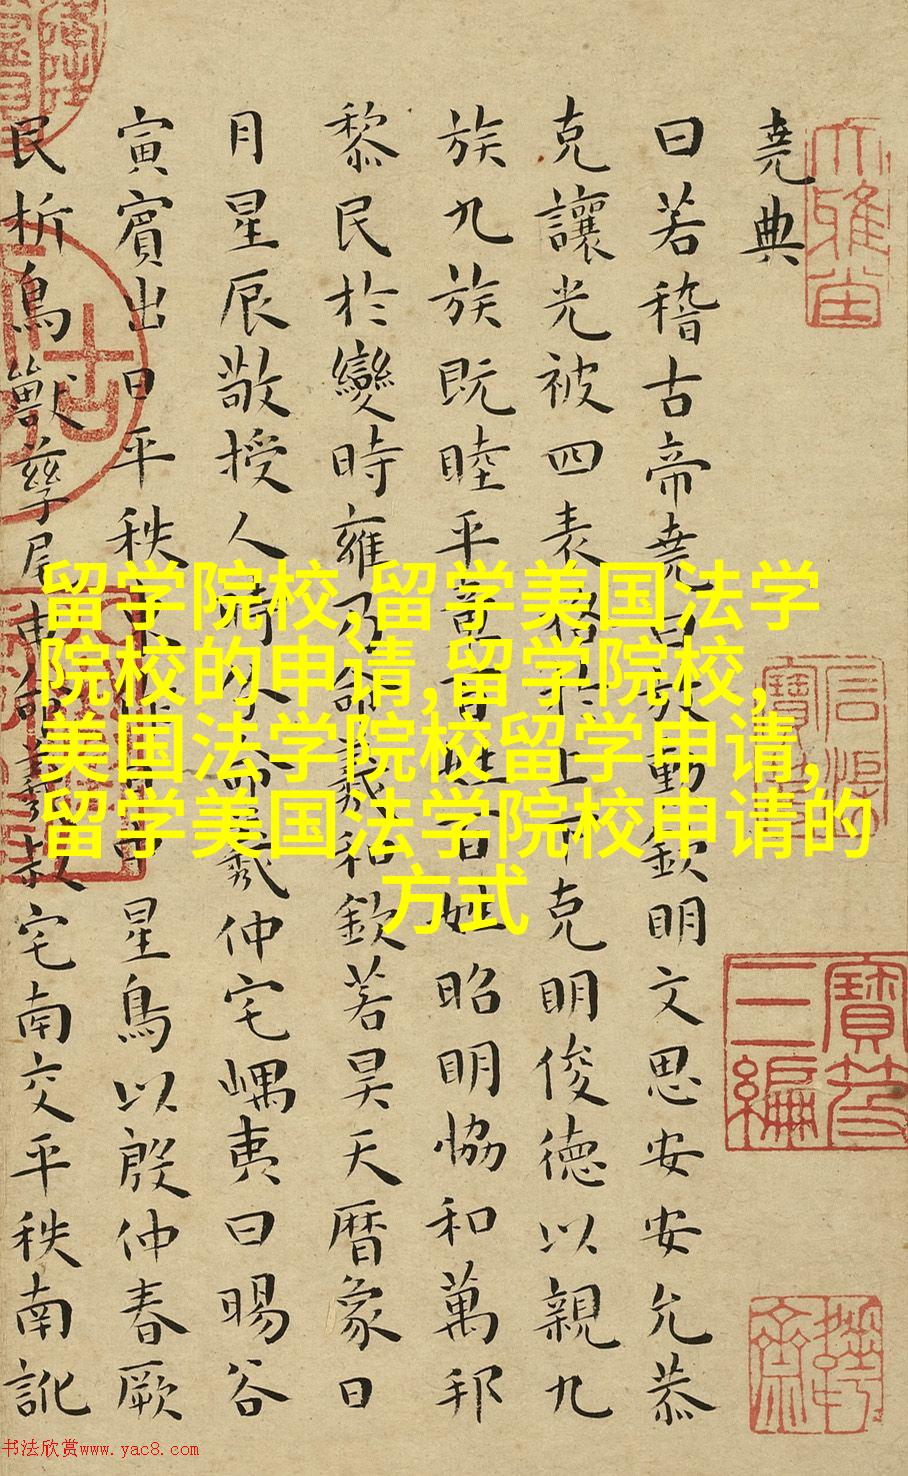 堯典
曰若稽古帝堯曰放勳欽明文思安安允恭
克讓光被四表格于上下克明俊德以親九
族九族既睦平章百姓百姓昭明恊和萬邦
黎民於變時雍乃命羲和欽若昊天曆象日
月星辰敬授人時分命羲仲宅嵎夷曰暘谷
寅賓出日平秩東作日中星鳥以殷仲春厥
民析鳥獸孳尾申命羲叔宅南交平秩南訛
寶笈
三編
留学院校,留学美国法学
院校的申请,留学院校,
美国法学院校留学申请,
留学美国法学院校申请的
方式
书法欣赏www.yac8.com